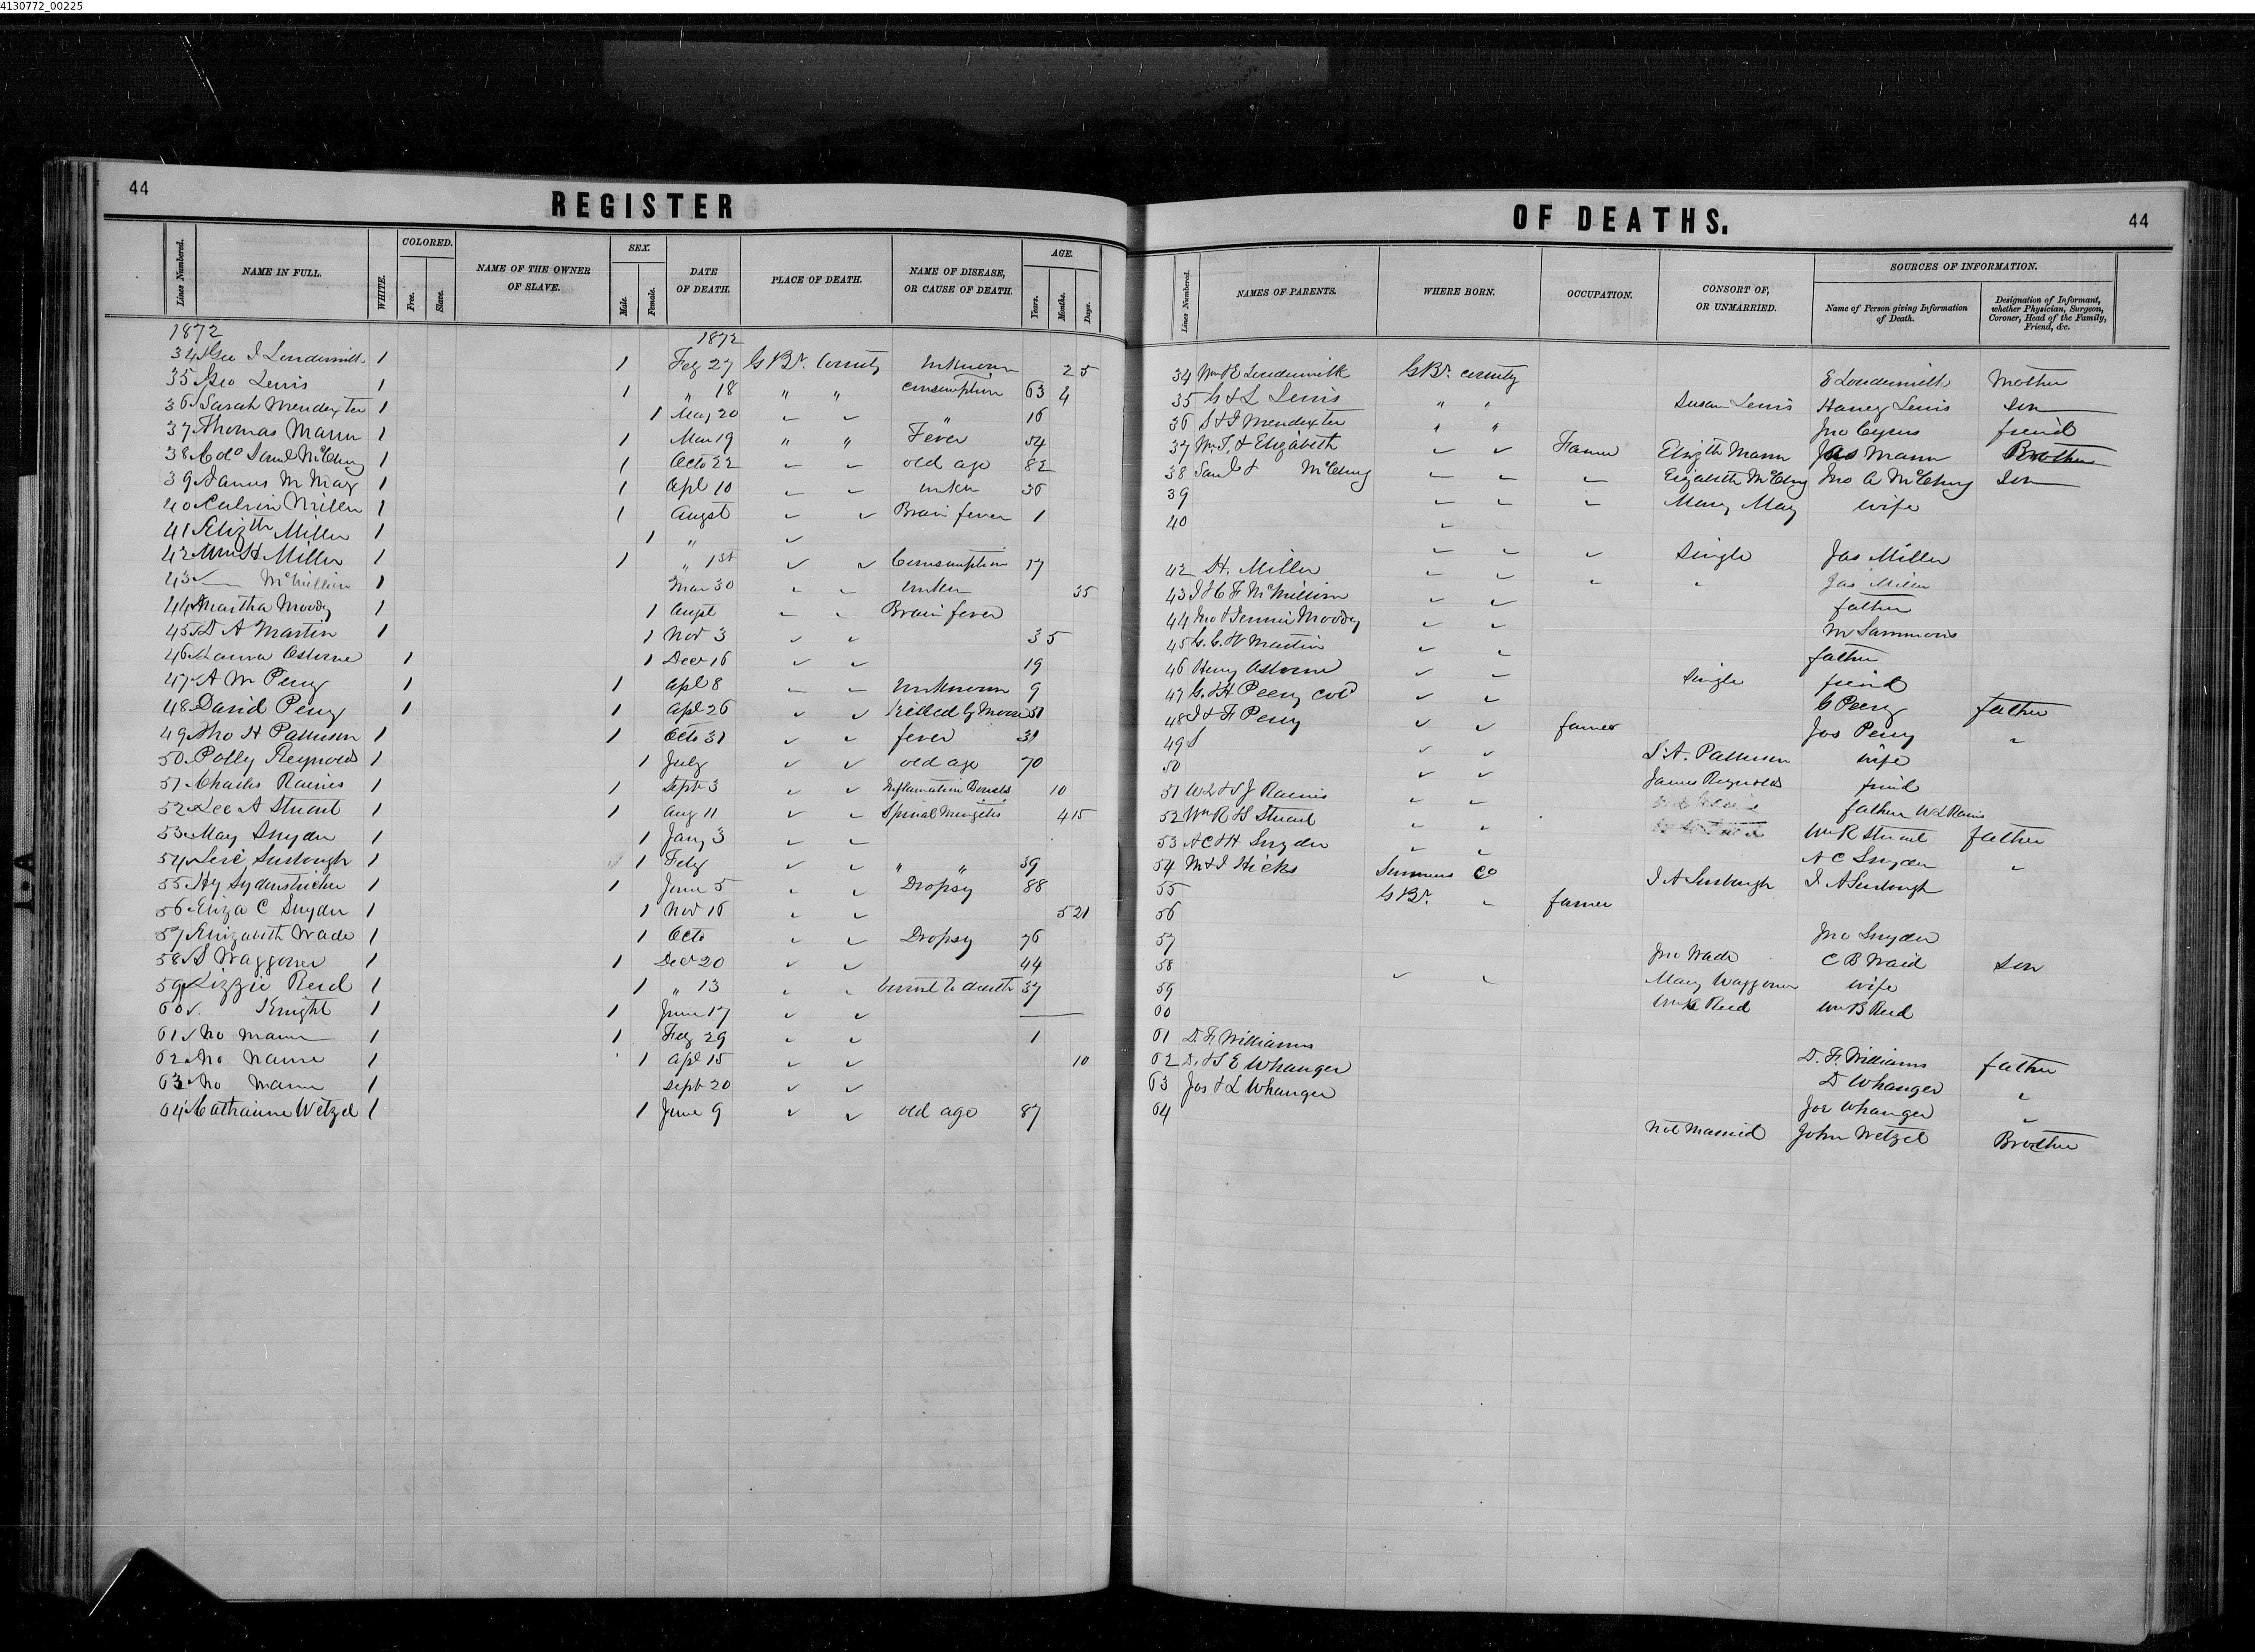 4130772_00225
44
REGISTER
Lines Numbered. NAME IN FULL. WHITE. COLORED. Free. Slave. NAME OF THE OWNER OF SLAVE. SEX. Male. Female. DATE OF DEATH. PLACE OF DEATH. NAME OF DISEASE, OR CAUSE OF DEATH. AGE. Years. Months. Days.
1872 1872
34 Geo I Loudermilk 1 1 Feb 27 G Br. County Unknown 2 5
35 Geo Lewis 1 1 " 18 " " Consumption 63 4
36 Sarah Mendexter 1 1 May 20 " 16
37 Thomas Mann 1 1 Mar 19 " " Fever 54
38 Saml McClung 1 1 Octo 22 old age 82
39 James M May 1 1 Apl 10 unkn 36
40 Calvin Miller 1 1 Augst Brain fever 1
41 Elizth Miller 1 1 "
42 Wm H Miller 1 1 " 1st Consumption 17
43 McMillion 1 Mar 30 Unkn 35
44 Martha Moody 1 1 Augt Brain fever
45 A Martin 1 1 Nov 3 3 5
46 Osborne 1 1 Decr 16 19
47 A M Perry 1 1 Apl 8 Unknown 9
48 David Perry 1 1 Apl 26 Killed by 51
49 Jno H Patterson 1 1 Octo 31 fever 31
50 Polly Reynolds 1 1 July old age 70
51 Charles Raines 1 1 Sept 3 Inflamation Bowels 10
52 Lee A Stuart 1 1 Aug 11 Spinal Mengitis 4 15
53 May Snyder 1 1 Jany 3
54 Surbough 1 1 Feby " " 59
55 Hy Sydenstricker 1 1 June 5 Dropsy 88
56 Eliza C Snyder 1 1 Nov 16 5 21
57 Elizabeth Wade 1 1 Octo Dropsy 76
58 S Waggoner 1 1 Decr 20 44
59 Lizzie Reid 1 1 " 13 burnt to death 37
60 Knight 1 1 June 17
61 No name 1 1 Feby 29 1
62 No name 1 1 Apl 15 10
63 No name 1 Sept 20
64 Catharine Wetzel 1 1 June 9 old age 87
OF DEATHS.
44
Lines Numbered. NAMES OF PARENTS. WHERE BORN. OCCUPATION. CONSORT OF, OR UNMARRIED. SOURCES OF INFORMATION. Name of Person giving Information of Death. Designation of Informant, whether Physician, Surgeon, Coroner, Head of the Family, Friend, &c.
34 Wm & E Loudermilk G Br. county E Loudermilk Mother
35 G & L Lewis " " Susan Lewis Harvey Lewis Son
36 S & J Mendexter " " Jno Cyrus friend
37 Wm T. & Elizabeth Farmer Elizth Mann Jas Mann Brother
38 Saml & McClung Elizabeth McClung Jno A McClung Son
39 Mary May wife
40
42 H. Miller Single Jas Miller
43 J & C F McMillion Jas Miller
44 Jno & Jennie Moody father
45 G. C. & V Martin M Sammons
46 Henry Osborne father
47 G. & H Perry cold Single friend
48 J & F Perry C Perry father
49 S farmer Jos Perry "
50 S. A. Patterson wife
51 W L & S J Raines James Reynolds friend
52 Wm R & S Stuart father W L Raines
53 A C & H Snyder Wm R Stuart father
54 M & J Hicks Summers Co A C Snyder "
55 G Br. farmer J A Surbough J A Surbough
56
57 Jno Snyder
58 Jno Wade C B Waid Son
59 Mary Waggoner wife
60 Wm B Reid Wm B Reid
61 D. F. Williams
62 D. & S E Whanger D. F. Williams father
63 Jos & L Whanger D Whanger "
64 Joe Whanger "
Not Married John Wetzel Brother